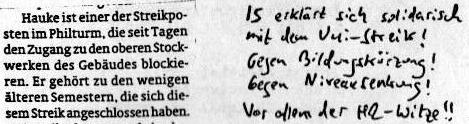 Hauke ist einer der Streikpo-
sten im Philturm, die seit Tagen
den Zugang zu den oberen Stock-
werken des Gebäudes blockie-
ren. Er gehört zu den wenigen
älteren Semestern, die sich die-
sem Streik angeschlossen haben.
IS erklärt sich solidarisch
mit dem Uni-Streik!
Gegen Bildungskürzung!
Gegen Niveausenkung!
Vor allem der HR-Witze!!